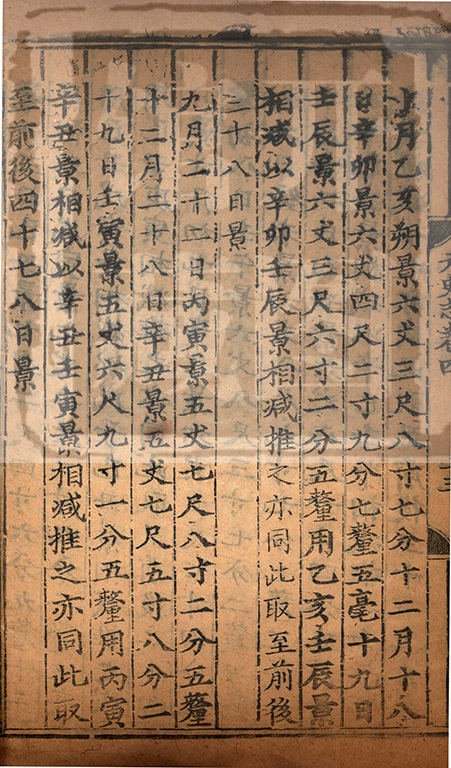 十一月乙亥朔景六丈三尺八寸七分十二月十八
日辛卯景六丈四尺二寸九分七釐五毫十九日
壬辰景六丈三尺六寸二分五釐用乙亥壬辰景
相減以辛卯壬辰景相減推之亦同此取至前後
三十八日景
九月二十二日丙寅景五丈七尺八寸二分五釐
十二月二十八日辛丑景五丈七尺五寸八分二
十九日壬寅景五丈六尺九寸一分五釐用丙寅
辛丑景相減以辛丑壬寅景相減推之亦同此取
至前後四十七八日景